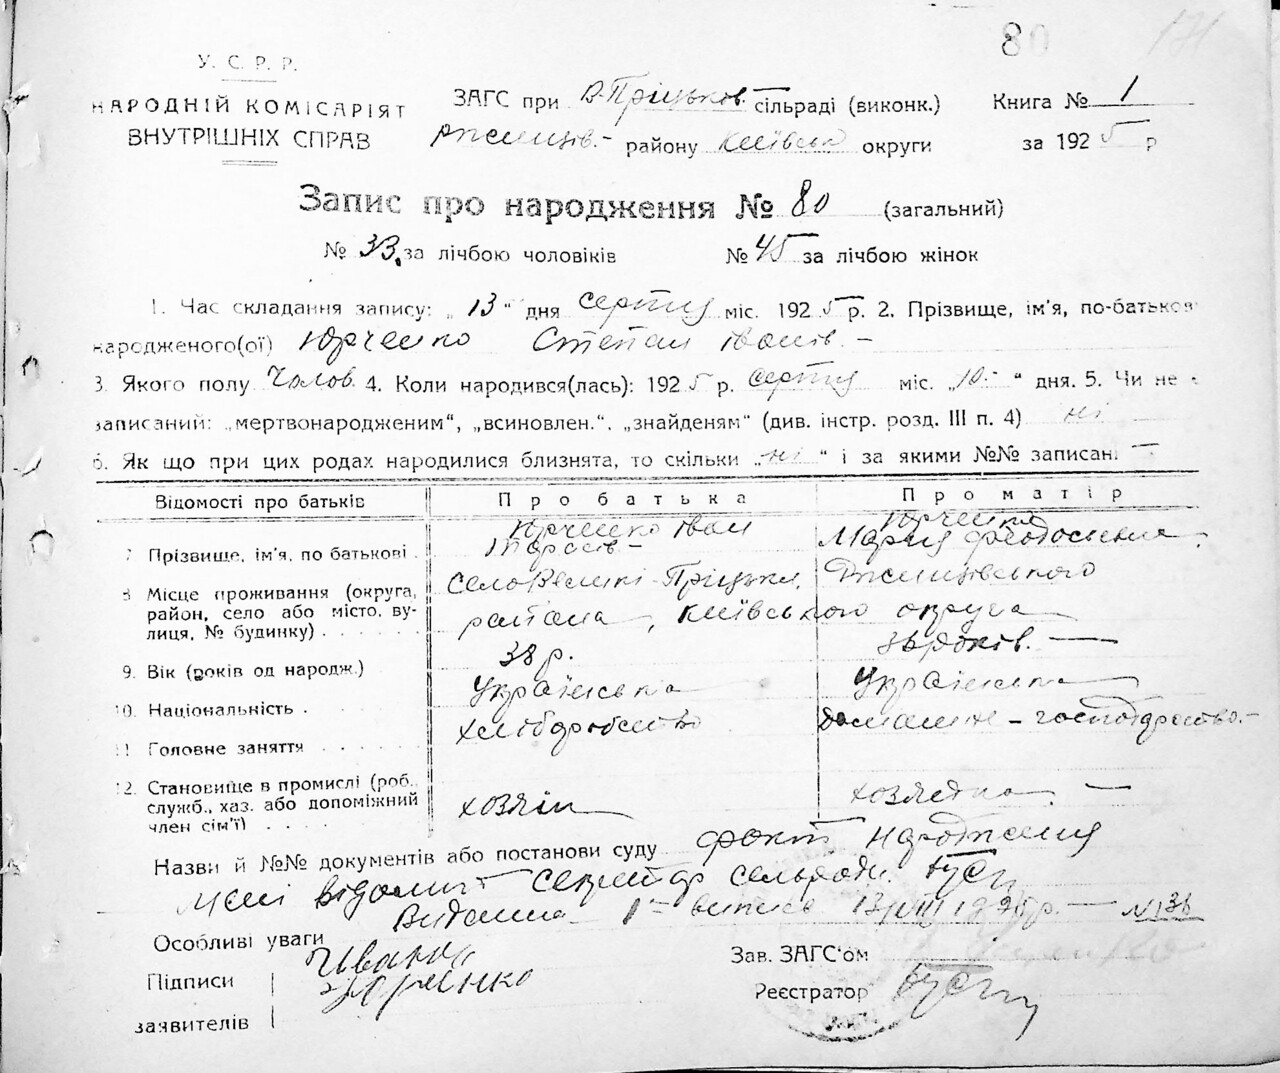 80 171
У. С. Р. Р.
НАРОДНІЙ КОМІСАРІЯТ
ВНУТРІШНІХ СПРАВ
ЗАГС при В-Пріцьков. сільраді (виконк.) Книга № 1
Ржищів.- району Київськ округи за 1925 р
Запис про народження № 80 (загальний)
№ 33. за лічбою чоловіків № 45 за лічбою жінок
1. Час складання запису: „13“ дня серпня міс. 1925 р. 2. Прізвище, ім'я, по-батькові
народженого(ої) Юрченко Степан Іванів. -
3. Якого полу Чолов. 4. Коли народився(лась): 1925 р. серпня міс. „10.-“ дня. 5. Чи не є
записаний: „мертвонародженим“, „всиновлен.“, „знайденям“ (див. інстр. розд. III п. 4) ні
6. Як що при цих родах народилися близнята, то скільки „ні“ і за якими №№ записані —
Відомості про батьків Про батька Про матір
7 Прізвище, ім'я, по батькові. Юрченко Іван Тарасів- Юрченко Мария Феодосієвна.
8 Місце проживання (округа, Село Великі-Пріцьки, Ржищівського
район, село або місто, ву- района, Київського округа
лиця, № будинку)
9. Вік (років од народж.) 38 р. років. —
10. Національність . Українська Українська
11 Головне заняття хліборобство домашнє - господарство.-
12. Становище в промислі (роб.,
служб., хаз. або допоміжний хозяїн хозяєчка. —
член сім'ї)
Назви й №№ документів або постанови суду факт народження
мені відомий секретар сельради
Видана 1- випись 13/VIII 1925р. — №138
Особливі уваги
Підписи Ивана Юрченко Зав. ЗАГС'ом
заявителів Реєстратор